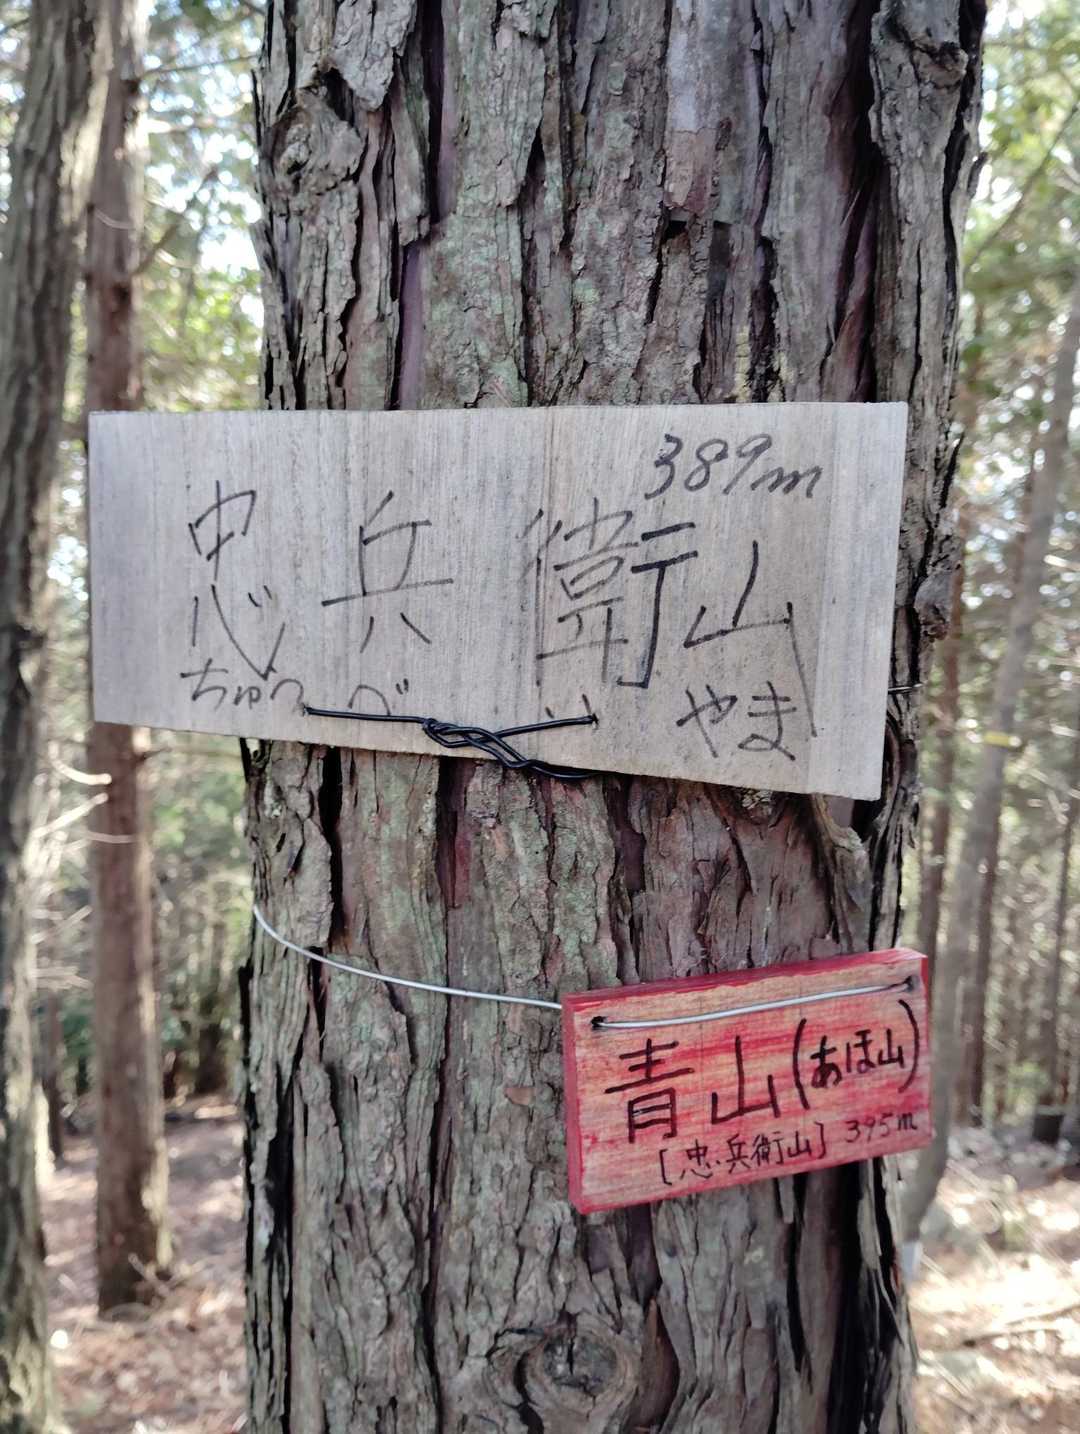 389m
忠兵衛山
ちゅう べ い やま
青山(あほ山)
[忠兵衛山] 395m